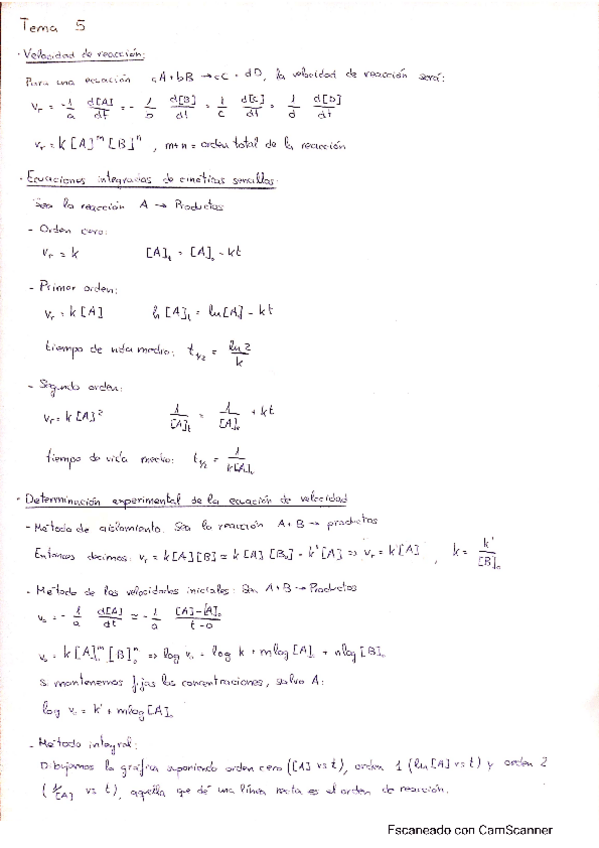 Tema 5
· Velocidad de reacción:
Para una ecuación aA+bB → cC + dD, la velocidad de reacción será:
v_r = -1/a d[A]/dt = -1/b d[B]/dt = 1/c d[C]/dt = 1/d d[D]/dt
v_r = k[A]^m [B]^n , m+n = orden total de la reacción
· Ecuaciones integradas de cinéticas sencillas:
Sea la reacción A → Productos
- Orden cero:
v_r = k [A]_t = [A]_0 - kt
- Primer orden:
v_r = k[A] ln[A]_t = ln[A]_0 - kt
tiempo de vida medio: t_1/2 = ln2/k
- Segundo orden:
v_r = k[A]^2 1/[A]_t = 1/[A]_0 + kt
tiempo de vida medio: t_1/2 = 1/k[A]_0
· Determinación experimental de la ecuación de velocidad
- Método de aislamiento. Sea la reacción A+B → productos
Entonces decimos: v_r = k[A][B] = k[A][B]_0 = k'[A] ⇒ v_r = k'[A] , k = k'/[B]_0
- Método de las velocidades iniciales: Sea A+B → Productos
v_0 = -1/a d[A]/dt ≃ -1/a [A]-[A]_0/t-0
v_0 = k[A]_0^m [B]_0^n ⇒ log v_0 = log k + mlog[A]_0 + nlog[B]_0
Si mantenemos fijas las concentraciones, salvo A:
log v_0 = k' + mlog[A]_0
- Método integral:
Dibujamos la gráfica suponiendo orden cero ([A] vs t), orden 1 (ln[A] vs t) y orden 2
(1/[A] vs t), aquella que dé una línea recta es el orden de reacción.
Escaneado con CamScanner